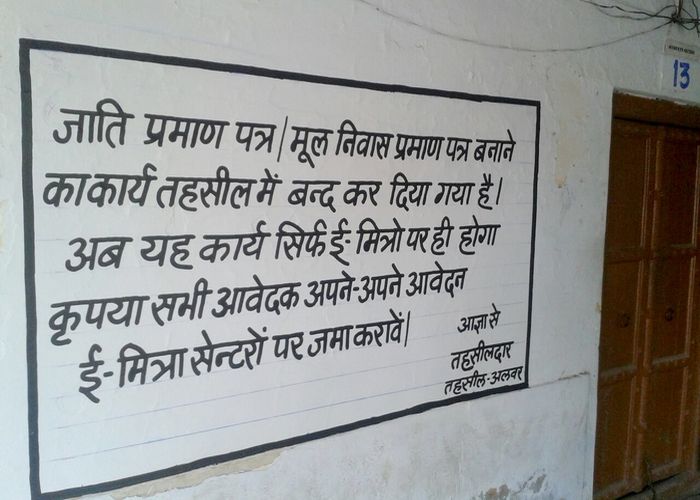 जाति प्रमाण पत्र/मूल निवास प्रमाण पत्र बनाने
का कार्य तहसील में बन्द कर दिया गया है।
अब यह कार्य सिर्फ ई-मित्रो पर ही होगा
कृपया सभी आवेदक अपने-अपने आवेदन
ई-मित्रा सेन्टरों पर जमा करावें।
आज्ञा से
तहसीलदार
तहसील-अलवर
13